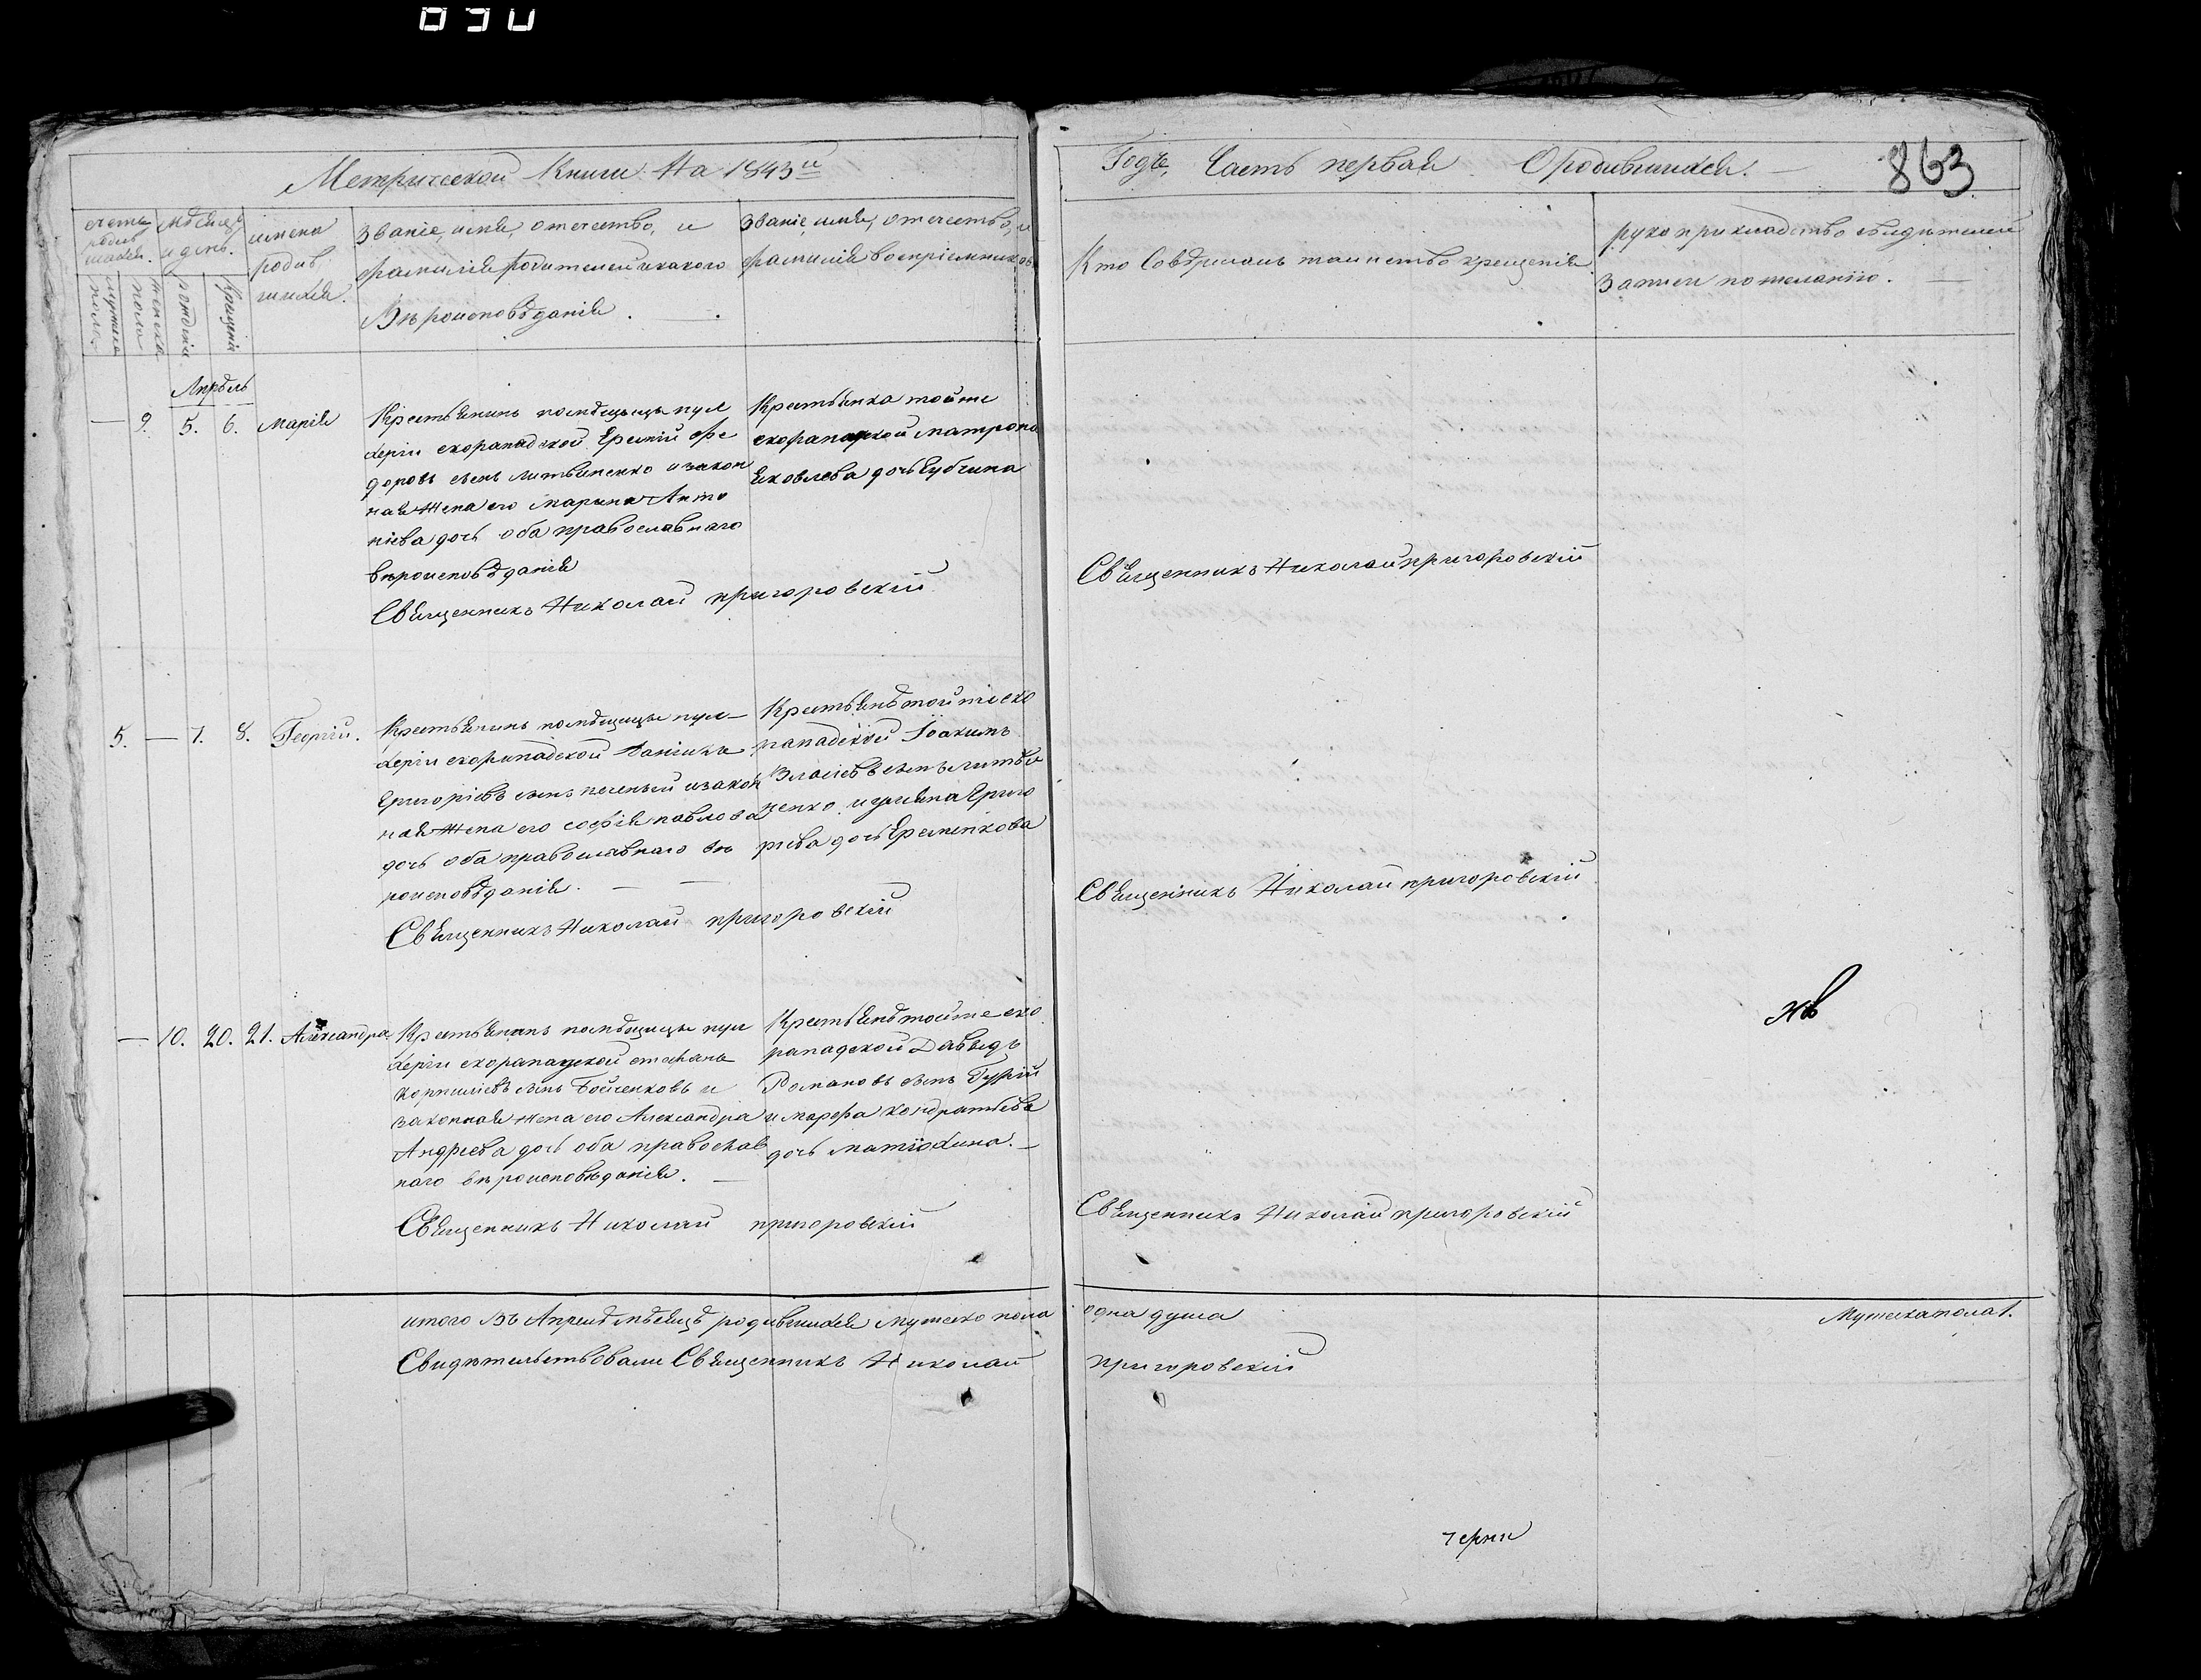 Метрической Книги На 1843й
Годъ, Часть первая Ородившихся.
863
счетъ родив шихся.
Мѣсяцъ и день.
имена родив шихся.
Званіе, имя, отечество, и
фамилія родителей и какого
Вѣроисповѣданія.
Званіе, имя, отечество, и
фамилія воспріемниковъ
Кто Совѣршалъ таинство крещенія
рукоприкладство свидѣтелей
Записи по желанію.
мужеска пола
женска пола
рожденія
крещенія
Апрѣль
— 9. 5. 6. Марія
Крестьянинъ помѣщицы пул
херіи скорападской Еремій Фе
доровъ сынъ литвиненко и закон
ная жена его марина Анто
ніева дочь оба православнаго
вѣроисповѣданія
Священникъ Николай пригоровскій
Крестьянка тойже
скорападской матрона
Яковлева дочь
Священникъ Николай пригоровскій
5. — 7. 8. Георгій.
Крестьянинъ помѣщицы пул—
херіи скорападской
Григоріевъ сынъ и закон
ная жена его софія павлова
дочь оба православнаго вѣ
роисповѣданія.
Священникъ Николай пригоровскій
Крестьянѣ тойже ско
рападской Іоакимъ
Власіевъ сынъ литви
ненко и уліяна Григо
ріева дочь Еременкова
Священникъ Николай пригоровскій
— 10. 20. 21. Александра
Крестьянинъ помѣщицы пул
херіи скорападской стефанъ
корниліевъ сынъ Бойченковъ и
законная жена его Александра
Андреева дочь оба православ
наго вѣроисповѣданія.
Священникъ Николай пригоровскій
Крестьянѣ тойже ско
рападской Давыдъ
Романовъ сынъ
и марфа кондратьева
дочь матюхина.
Священникъ Николай пригоровскій
итого Въ Апрелѣ мѣсяцѣ родившихся мужеско пола одна душа
Мужеска пола 1.
Свидѣтельствовали Священникъ Николай пригоровскій